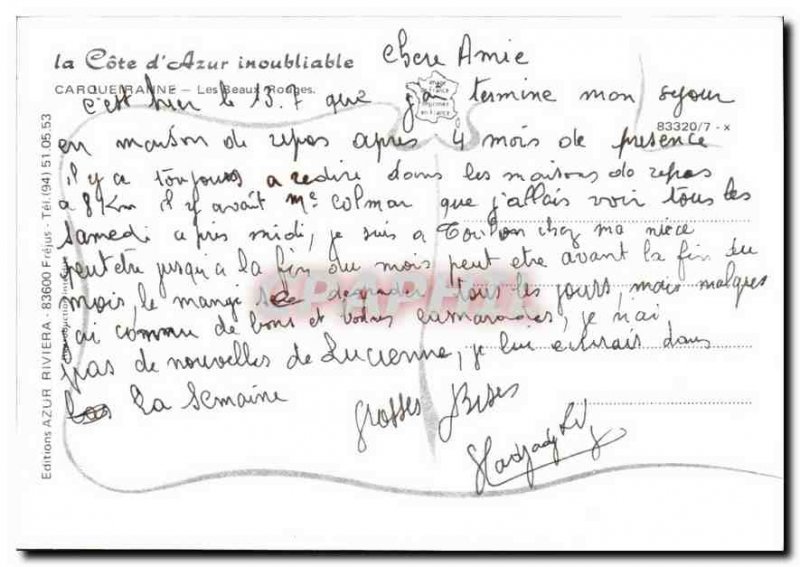 la Côte d'Azur inoubliable
chere Amie
CARQUEIRANNE – Les Beaux Rouges.
c'est hier le 13.7 que j'ai termine mon sejour
83320/7 - x
en maison de repos apres 4 mois de presence
il y a toujours a redire dans les maisons de repos
a 8 Km il y avait Me Colmar que j'allais voir tous les
Samedi apres midi, je suis a Toulon chez ma niece
peut etre jusqu'a la fin du mois peut etre avant la fin du
mois, le mange se tous les jours, mais malgres
j'ai connu de bons et camarades, je n'ai
pas de nouvelles de Lucienne, je lui ecrirais dans
la Semaine
Grosses Bises
Editions AZUR RIVIERA - 83600 Fréjus - Tél. (94) 51.05.53